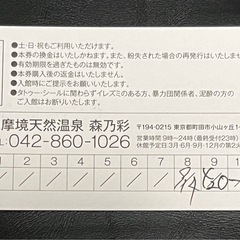 ●土・日・祝もご利用いただけます。
●券の換金はいたしかねます。また、紛失された場合の再発行はいたしません。
●有効期限を過ぎたものは無効です。
●本券購入後の返金はいたしません。
●入館時にご提示をお願いします。
●タトゥー・シールに関わらずイレズミのある方、暴力団関係者、泥酔の方の
ご入館はお断りいたします。
摩境天然温泉 森乃彩
042-860-1026
〒194-0215 東京都町田市小山ヶ丘1-
営業時間 9時~24時(最終受付23時
休館予定日 3月・6月・9月・12月の第2火
1 2 3 4 5 6 7 8 9